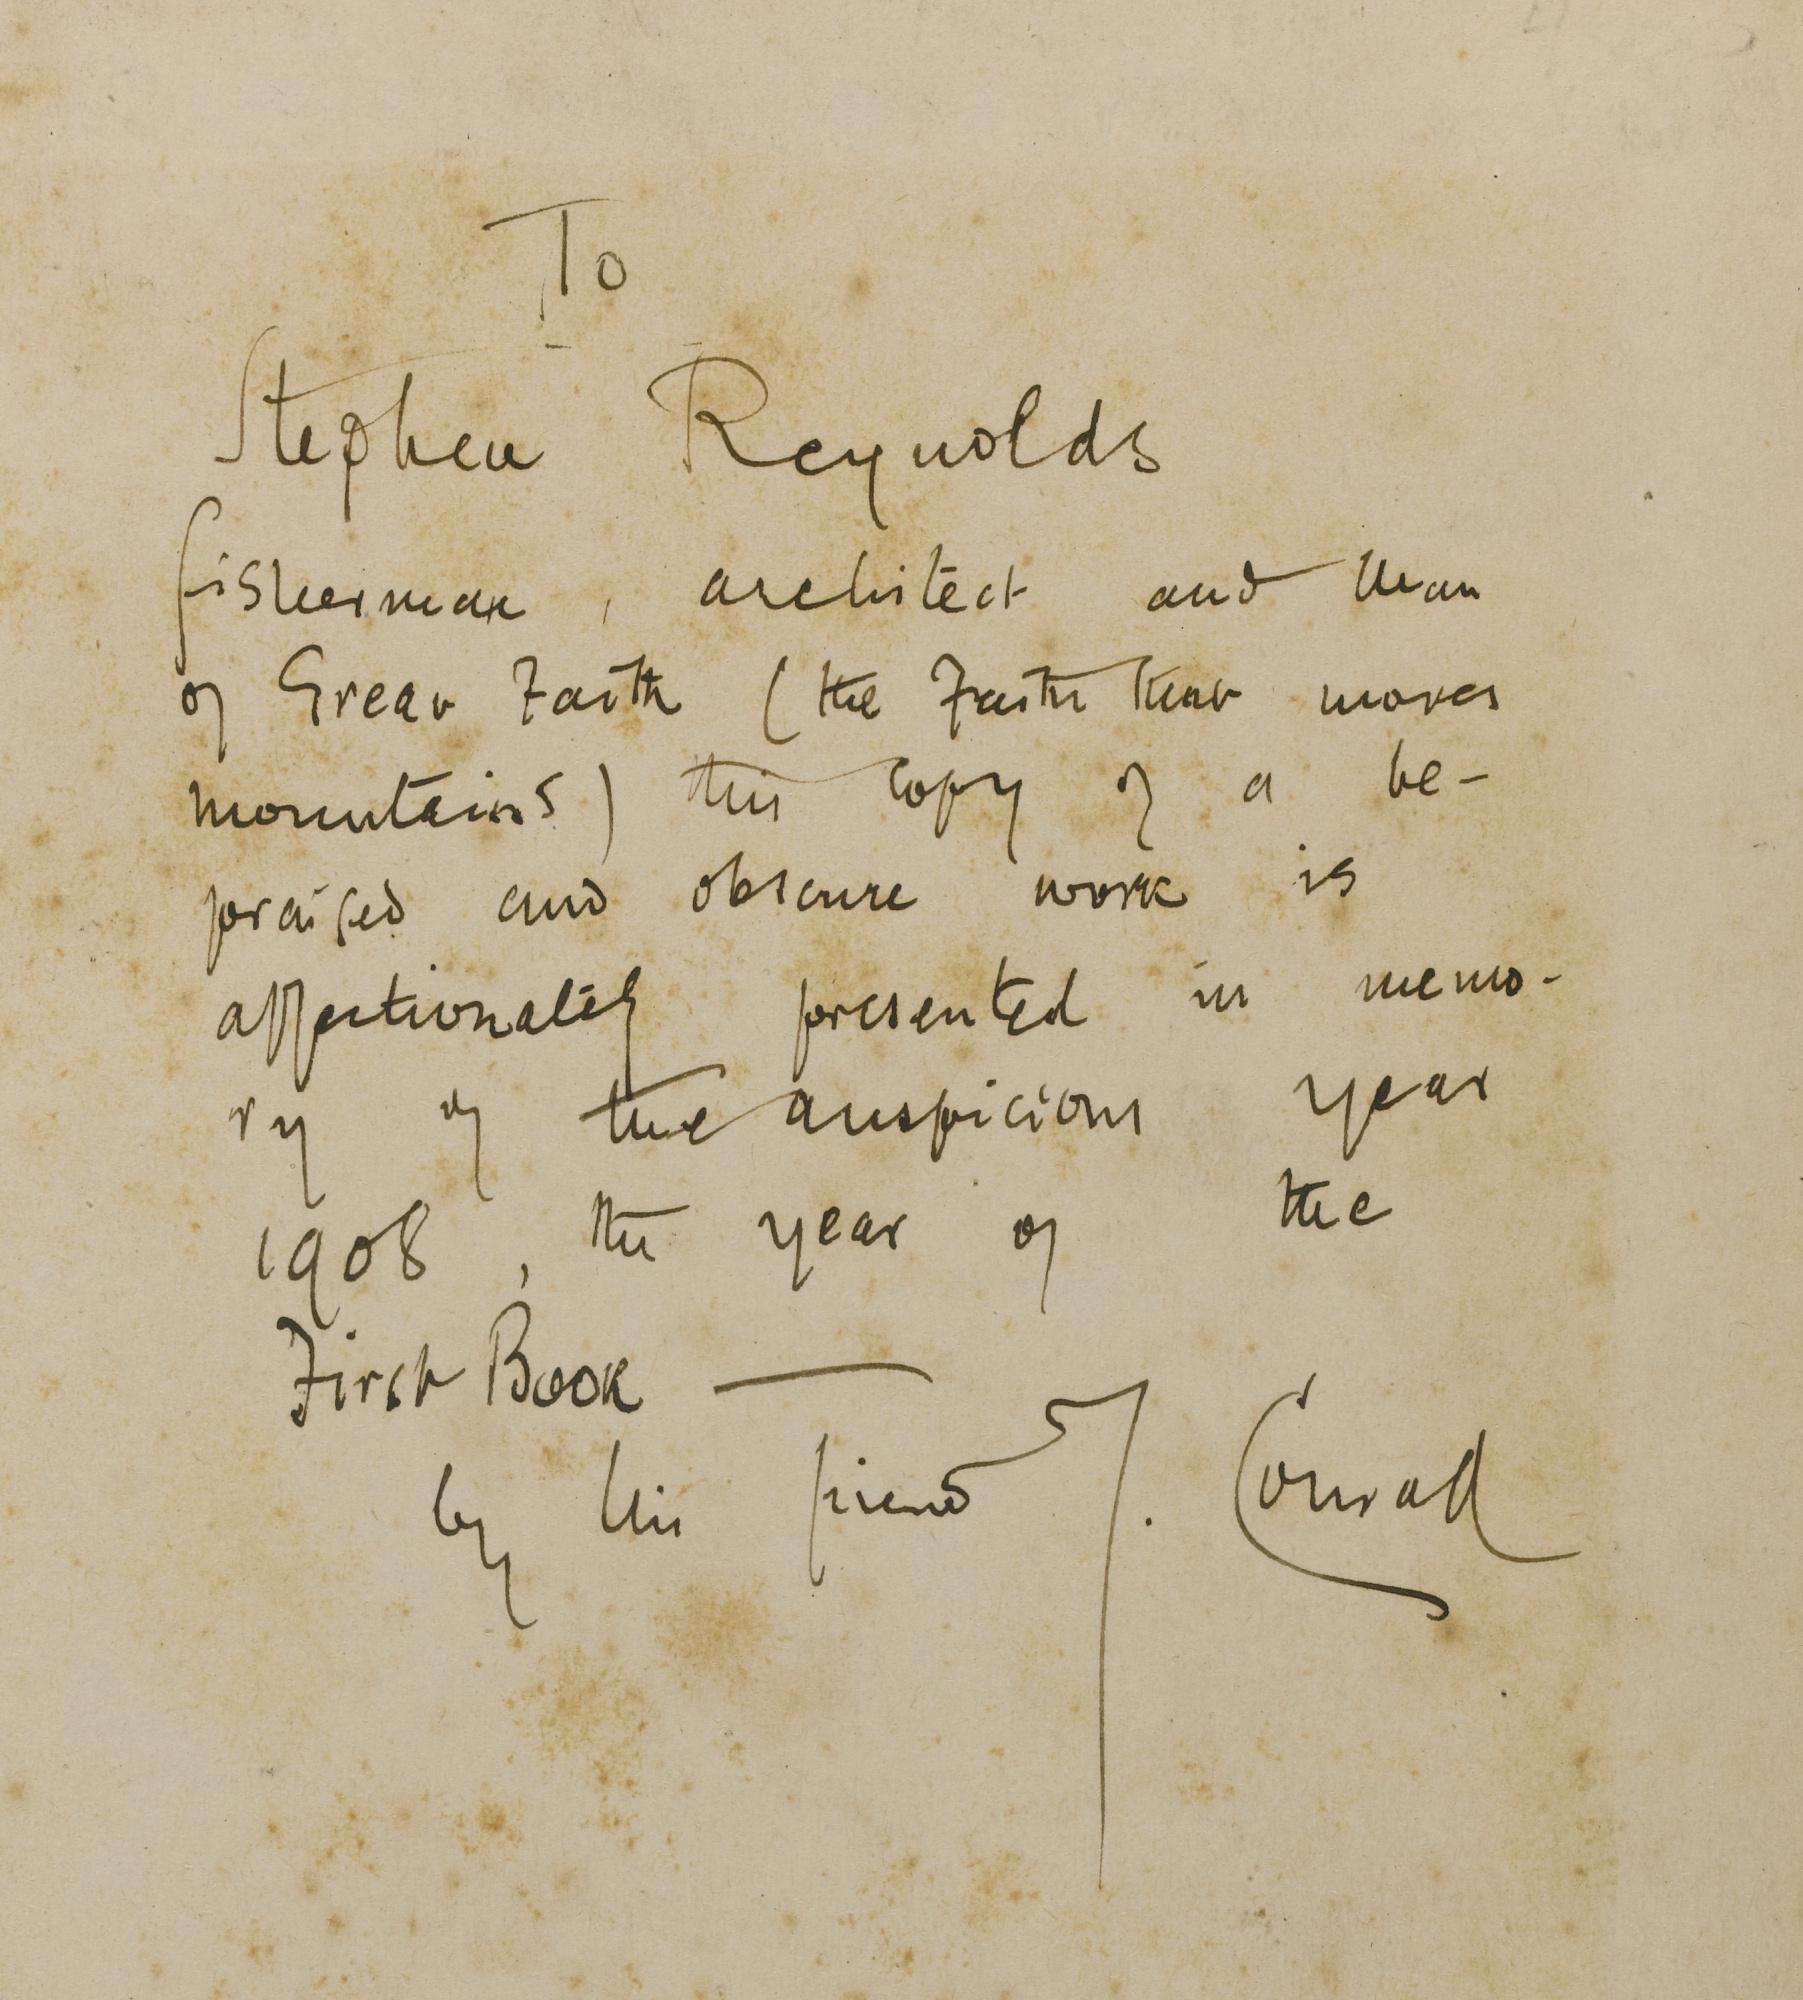 To
Stephen Reynolds
fisherman, architect and man
of Great Faith (the Faith that moves
mountains) this copy of a be-
praised and obscure work is
affectionately presented in memo-
ry of the auspicious year
1908, the year of the
First Book —
by his friend J. Conrad